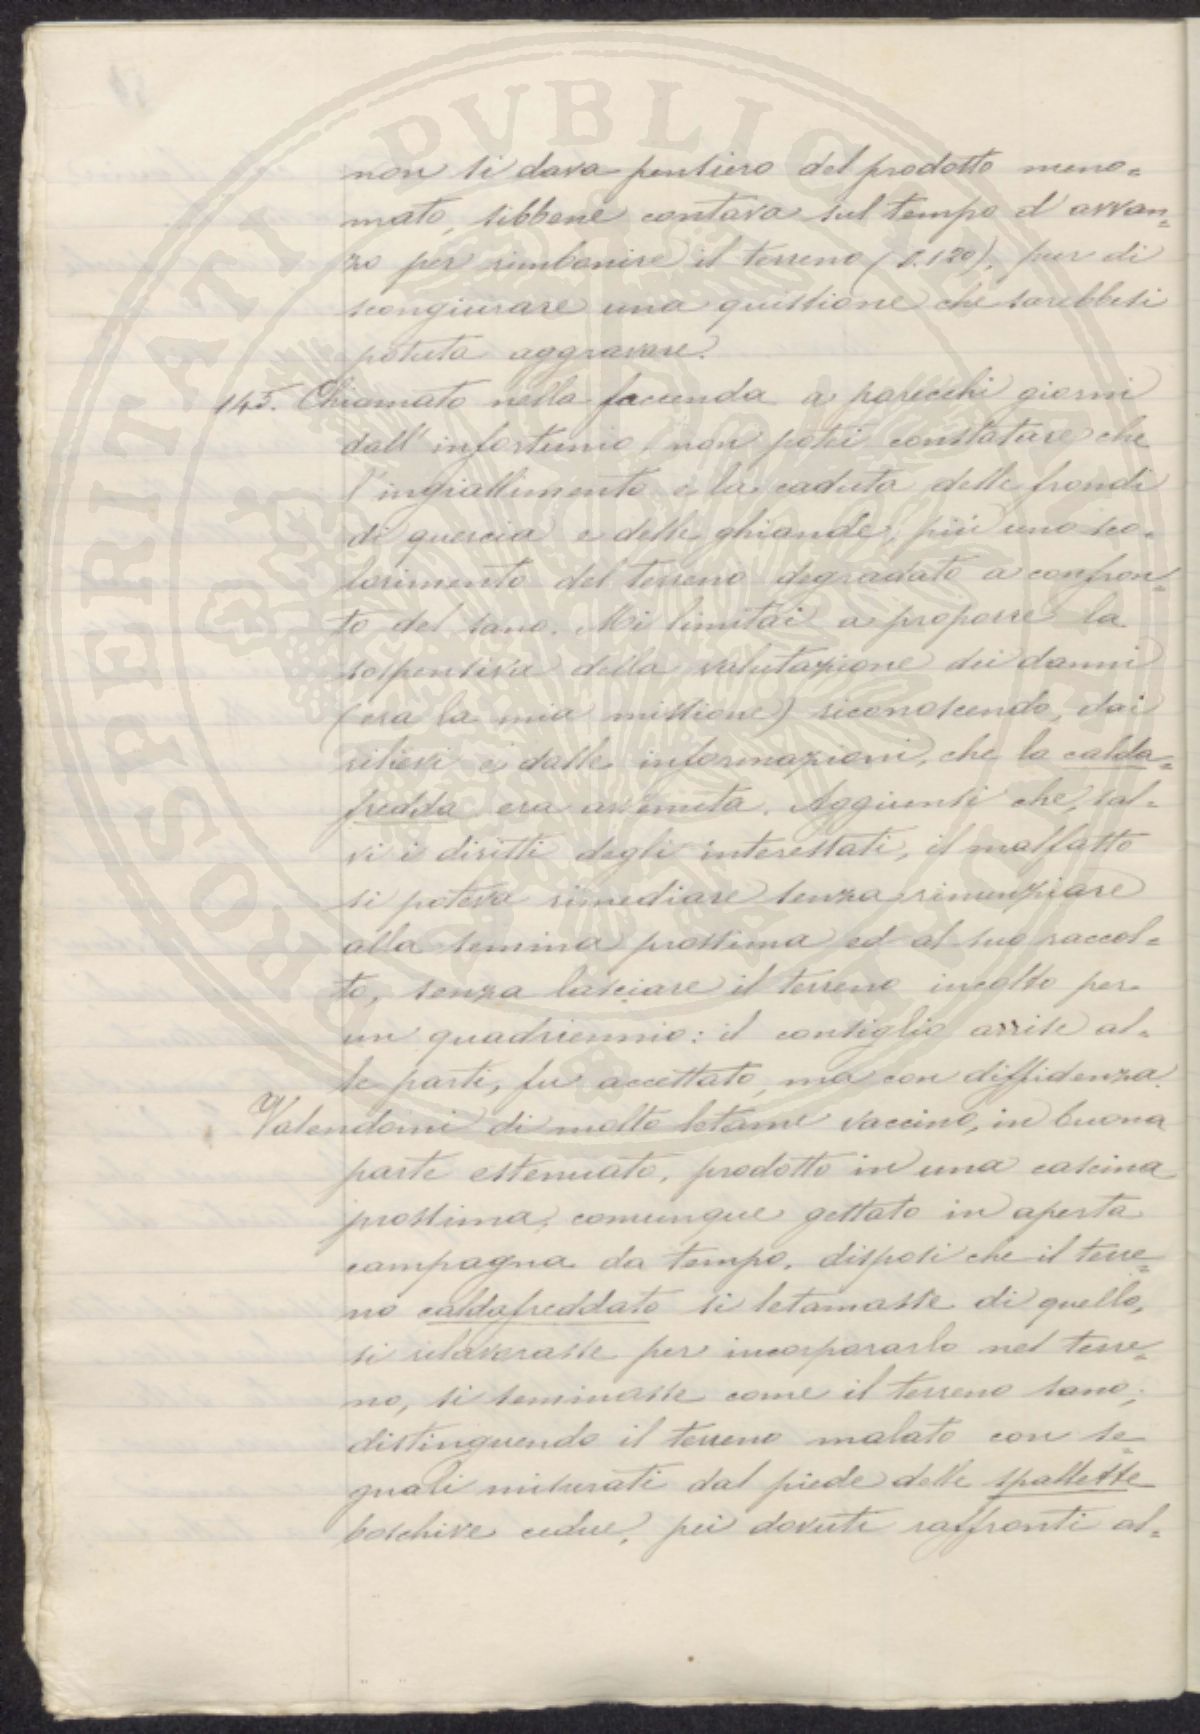 non si dava pensiero del prodotto meno=
mato, sibbene contava sul tempo d'avvan=
zo per rimbonire il terreno (§.120), pur di
scongiurare una quistione che sarebbesi
potuta aggravare.
145. Chiamato nella faccenda a parecchi giorni
dall'infortunio, non potei constatare che
l'ingiallimento e la caduta delle frondi
di quercia e delle ghiande, più uno sco=
lorimento del terreno degradato a confron=
to del sano. Mi limitai a proporre la
sospensiva della valutazione dei danni
(era la mia missione) riconoscendo, dai
rilievi e dalle informazioni, che la calda=
fredda era avvenuta. Aggiunsi che, sal=
vi i diritti degli interessati, il malfatto
si poteva rimediare senza rinunziare
alla semina prossima ed al suo raccol=
to, senza lasciare il terreno incolto per
un quadriennio: il consiglio arrise al=
le parti, fu accettato, ma con diffidenza.
Valendomi di molto letame vaccino, in buona
parte estenuato, prodotto in una cascina
prossima, comunque gettato in aperta
campagna da tempo, disposi che il terre=
no caldafreddato si letamasse di quello,
si rilavorasse per incorporarlo nel terre=
no, si seminasse come il terreno sano;
distinguendo il terreno malato con se=
gnali misurati dal piede delle spallette
boschive cedue, pei dovuti raffronti al=
PROSPERITATI PVBLICAE AVGENDAE